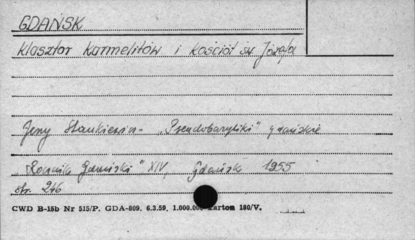 GDAŃSK
Klasztor Karmelitów i kościół św. Józefa
Jerzy Stankiewicz - „Pseudobazyliki" gdańskie
„Rocznik Gdański" XIV, Gdańsk 1955
str. 246
CWD B-15b Nr 515/P, GDA-809, 6.3.59, 1.000.000 kartom 180/V.